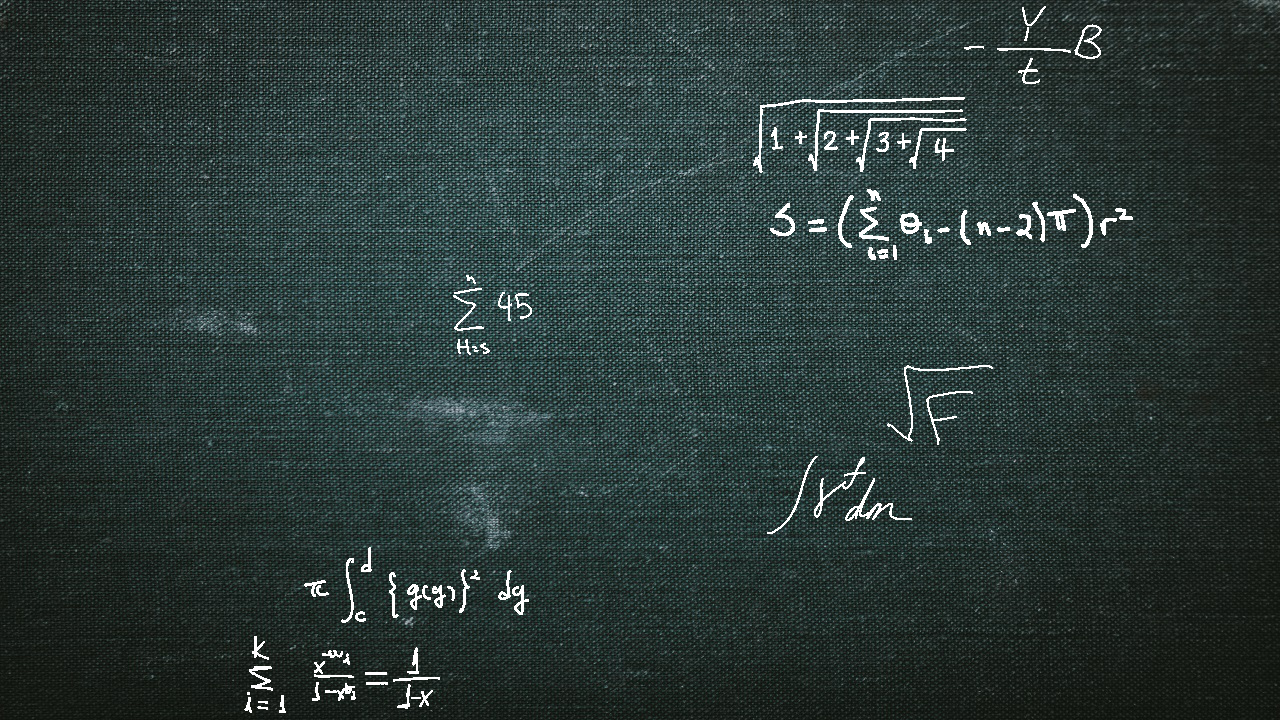 - Y/t B
√(1+√(2+√(3+√4)))
S = (∑_{i=1}^{n} θ_i - (n-2)π) r²
∑_{H=s}^{n} 45
√F
∫ γ^t dm
π ∫_c^d {g(y)}² dy
∑_{i=1}^{K} x^{-w_i}/(1-x^{b_i}) = 1/(1-x)